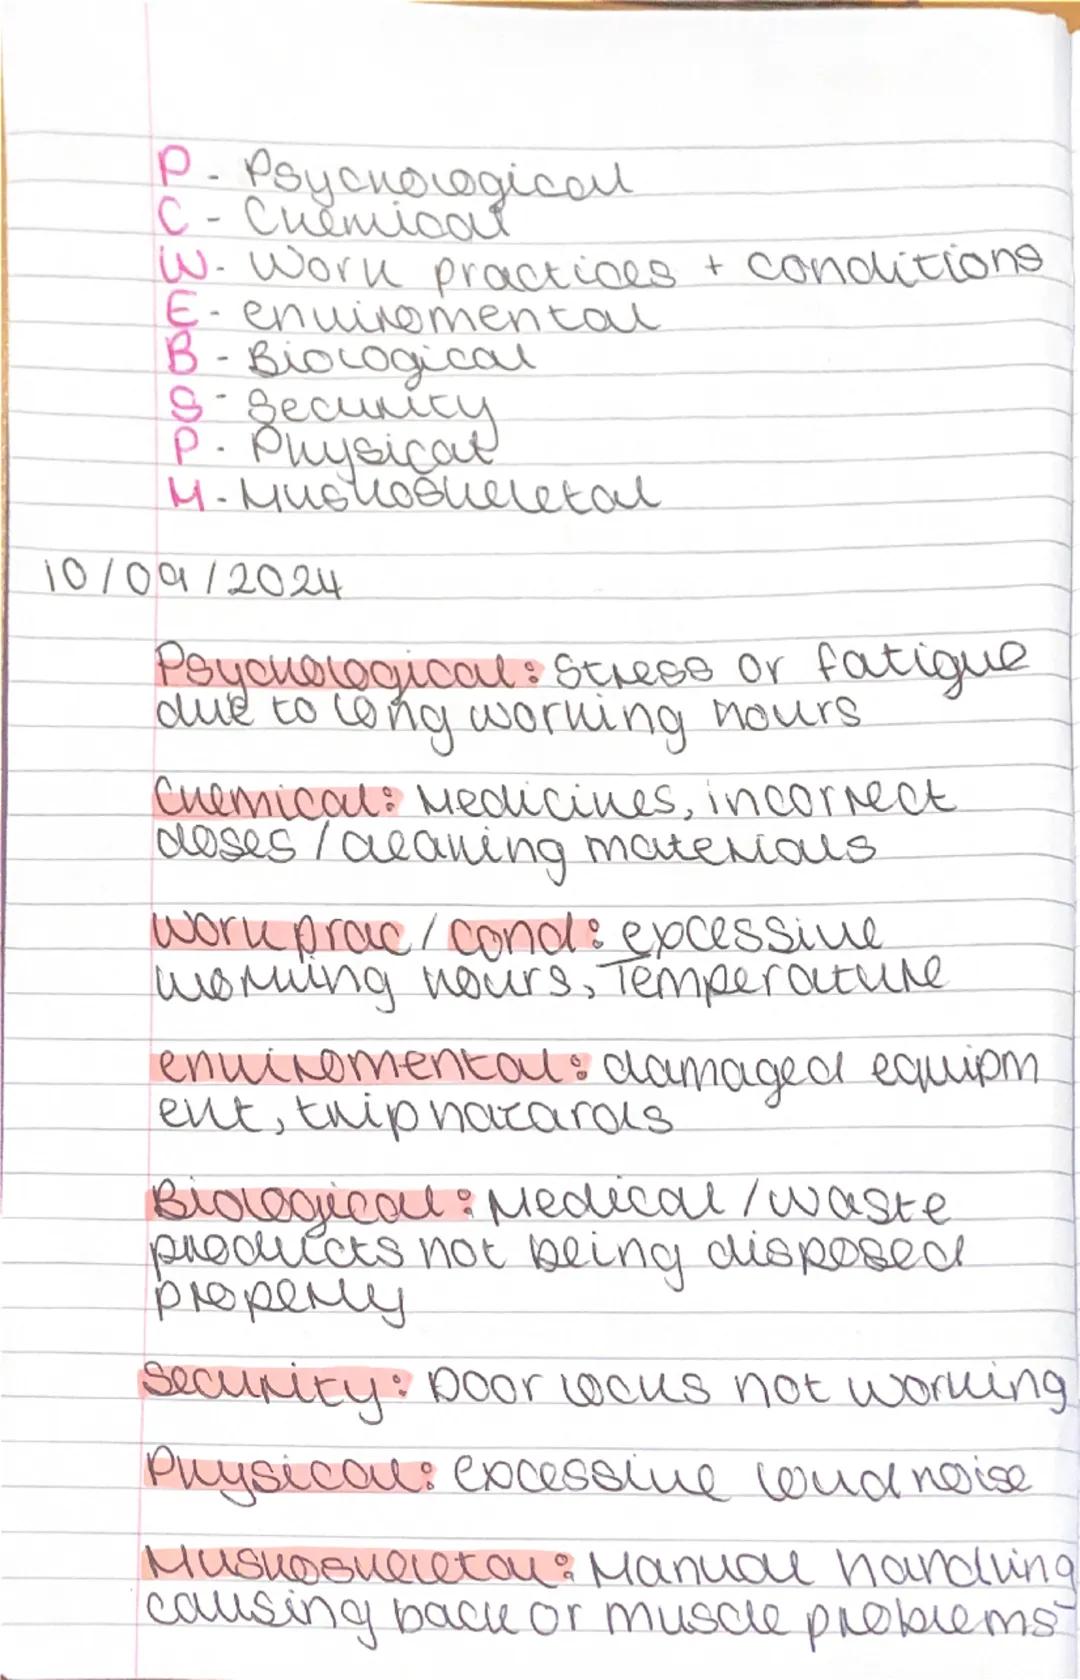 P - Psychological
C - Chemical
W - Work practices + conditions
E - enviromental
B - Biological
S - Security
P - Physical
M - Muskoskeletal
10/09/2024
Psychological: Stress or fatigue
due to long working hours
Chemical: Medicines, incorrect
doses / cleaning materials
work prac / cond: excessive
working hours, Temperature
enviromental: damaged equipm
ent, trip hazards
Biological: Medical / waste
products not being disposed
properly
Security: Door locks not working
Physical: excessive loud noise
Muskoskeletal: Manual handling
causing back or muscle problems